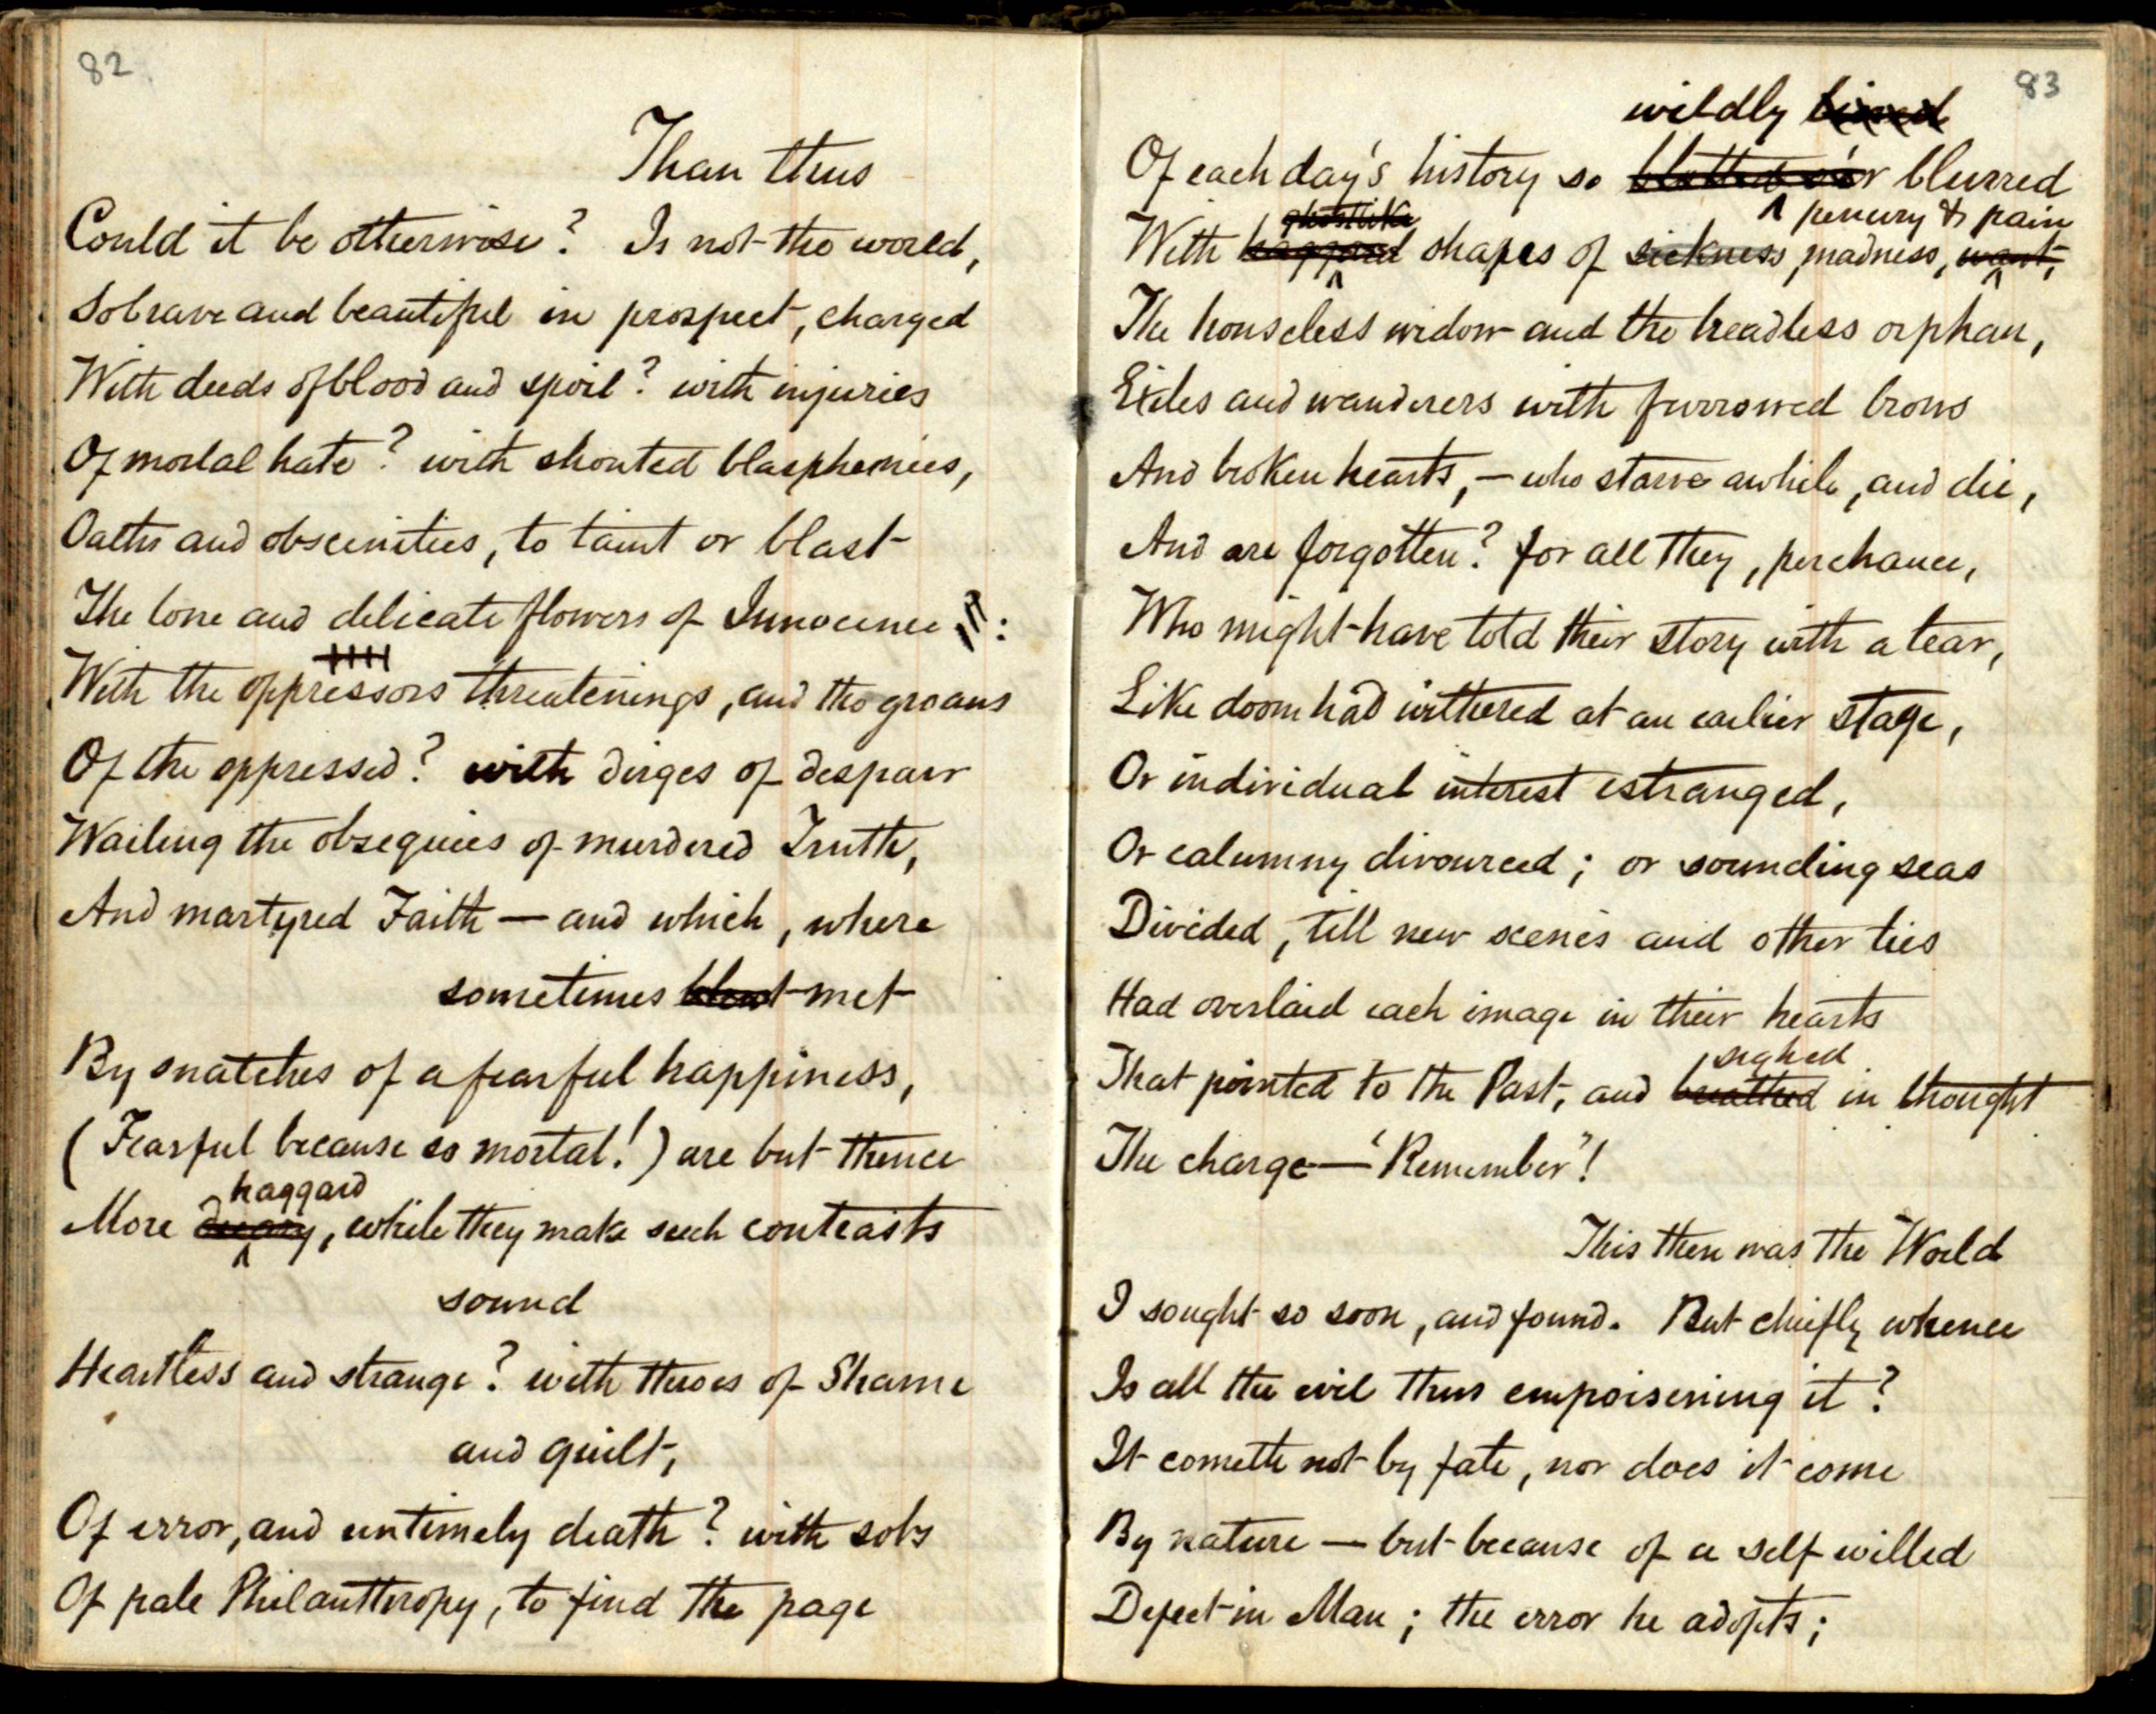 82
Than thus
Could it be otherwise? Is not the world,
So brave and beautiful in prospect, charged
With deeds of blood and spoil? with injuries
Of mortal hate? with shouted blasphemies,
Oaths and obscenities, to taint or blast
The lone and delicate flowers of Innocence:
With the oppressors threatenings, and the groans
Of the oppressed? with dirges of despair
Wailing the obsequies of murdered Truth,
And martyred Faith — and which, where
sometimes blent met
By snatches of a fearful happiness,
(Fearful because so mortal!) are but thence
haggard
More dreary, while they make such contrasts
sound
Heartless and strange? with throes of Shame
and guilt,
Of error, and untimely death? with sobs
Of pale Philanthropy, to find the page
83
wildly
Of each day's history so blotted o'er blurred
ghostlike penury & pain
With haggard shapes of sickness, madness, want,
The houseless widow and the breadless orphan,
Exiles and wanderers with furrowed brows
And broken hearts, — who starve awhile, and die,
And are forgotten? for all they, perchance,
Who might have told their story with a tear,
Like doom had withered at an earlier stage,
Or individual interest estranged,
Or calumny divourced; or sounding seas
Divided, till new scenes and other ties
Had overlaid each image in their hearts
sighed
That pointed to the Past, and breathed in thought
The charge — 'Remember'!
This then was the World
I sought so soon, and found. But chiefly whence
Is all the evil thus empoisening it?
It cometh not by fate, nor does it come
By nature — but because of a self willed
Defect in Man; the error he adopts;